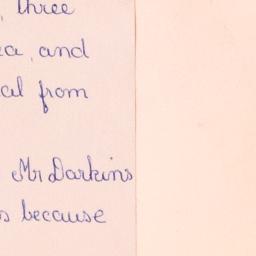 , three
and
from
Mr Darkins
because